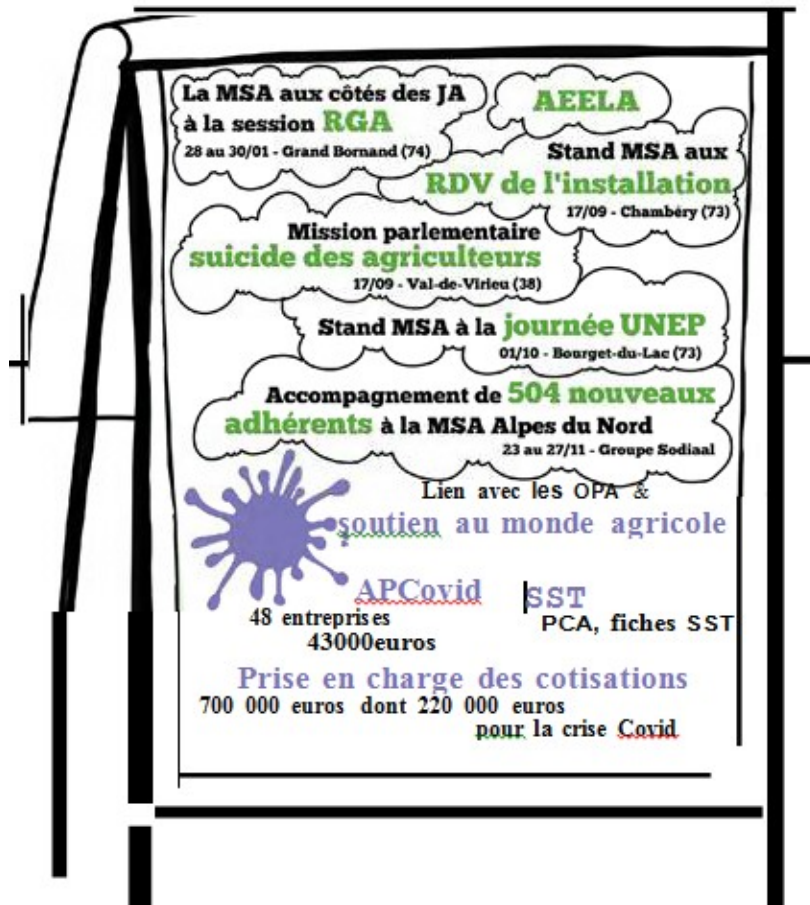 La MSA aux côtés des JA
à la session RGA
28 au 30/01 - Grand Bornand (74)
AEELA
Stand MSA aux
RDV de l'installation
17/09 - Chambéry (73)
Mission parlementaire
suicide des agriculteurs
17/09 - Val-de-Virieu (38)
Stand MSA à la journée UNEP
01/10 - Bourget-du-Lac (73)
Accompagnement de 504 nouveaux
adhérents à la MSA Alpes du Nord
23 au 27/11 - Groupe Sodiaal
Lien avec les OPA &
soutien au monde agricole
:
APCovid
48 entreprises
43000euros
SST
PCA, fiches SST
Prise en charge des cotisations
700 000 euros dont 220 000 euros
pour la crise Covid